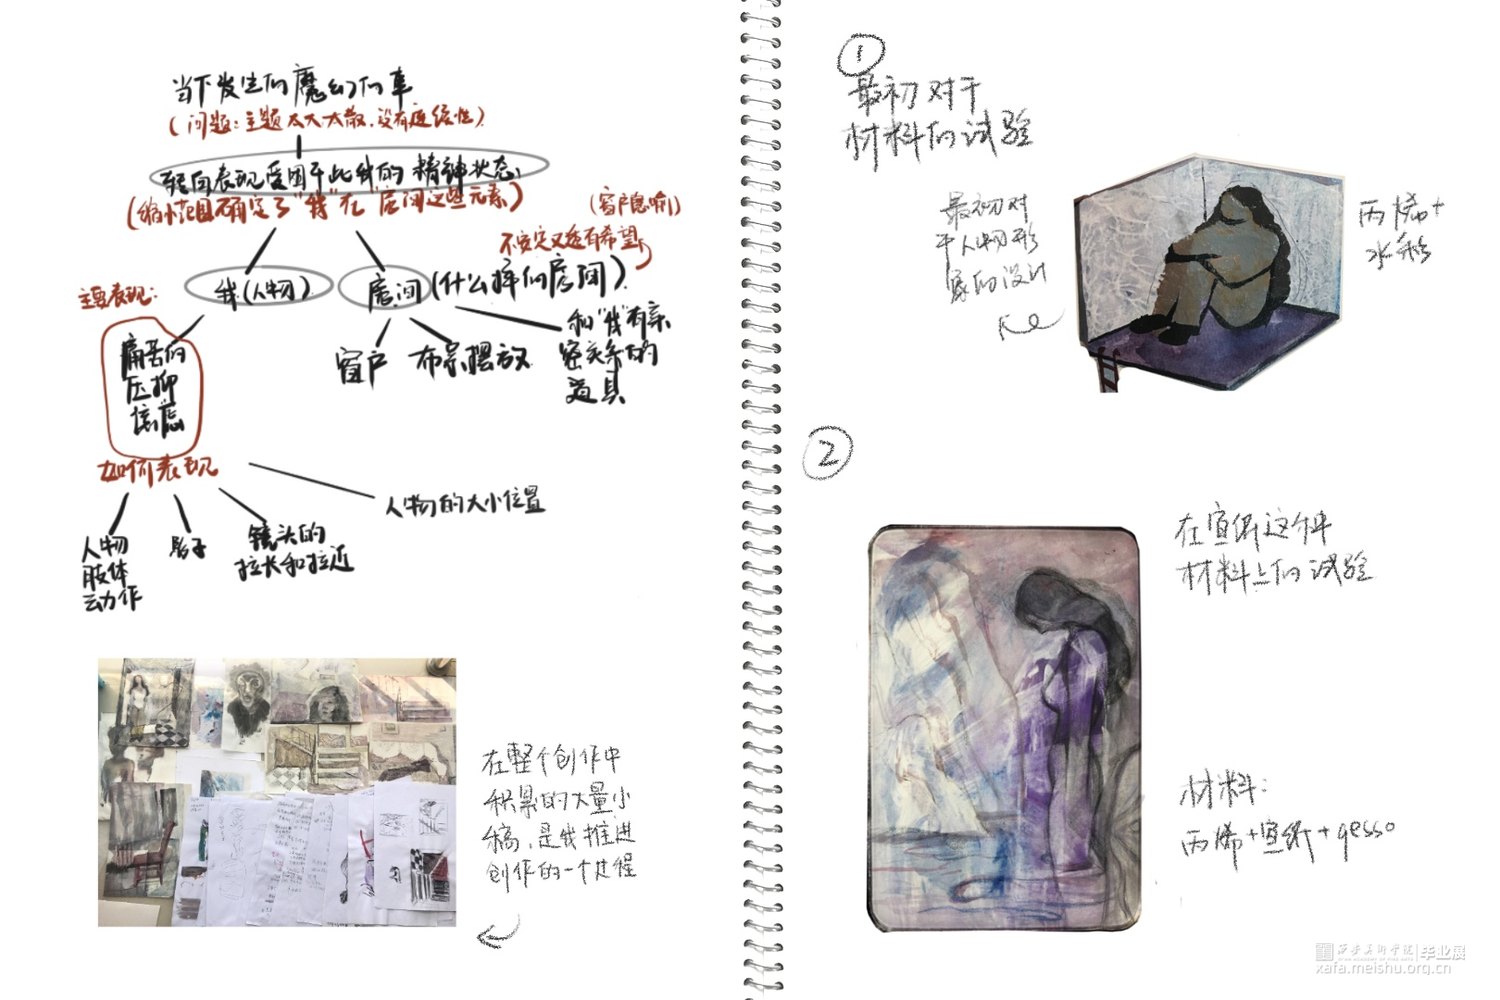 当下发生的魔幻的事
(问题:主题太大太散,没有连续性)
转向表现受困于此我的精神状态
(缩小范围确定了"我"在"房间这些元素)
(窗户隐喻)
不安定又透有希望
我(人物)
房间(什么样的房间)
主要表现:
痛苦的
压抑
焦虑
窗户
布景摆放
和"我"有亲
密关系的
道具
如何表现
人物
肢体
动作
影子
镜头的
拉长和拉近
人物的大小位置
在整个创作中
积累的大量小
稿,是我推进
创作的一个过程
①
最初对于
材料的试验
最初对
于人物形
象的设计
丙烯+
水彩
②
在宣纸这个
材料上的试验
材料:
丙烯+宣纸+gesso
西安美术学院 毕业展
xafa.meishu.org.cn